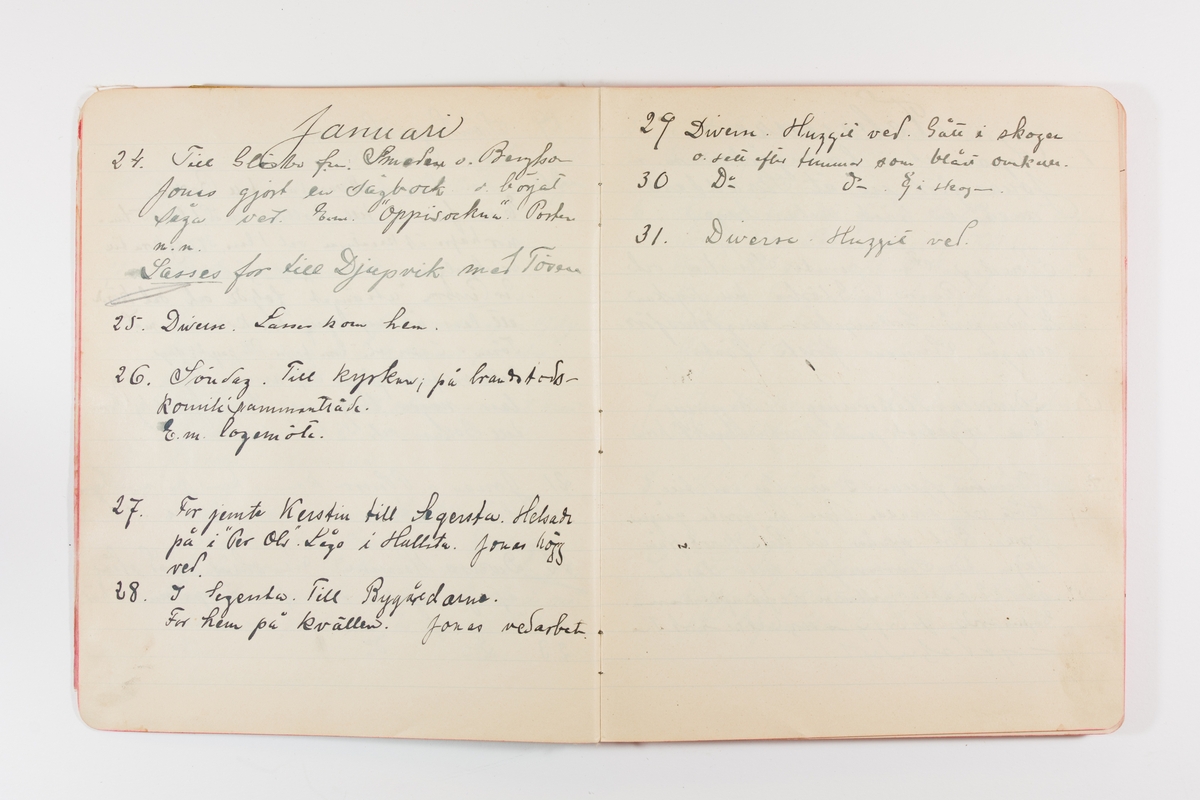 Januari
24. Till Glösbo fm. Smeden o. Bergson
Jonas gjort en sågbock o. börjat
såga ved. E.m. "Oppisocknu". Posten
m.m.
Lasses for till Djupvik med Tösen
25. Diverse. Lasses kom hem.
26. Söndag. Till kyrkan; på brandstods-
komitésammanträde.
E.m. logemöte.
27. For jemte Kerstin till Segersta. Helsade
på i "Per Ols". Lågo i Hallsta. Jonas högg
ved.
28. I Segersta. Till Bygärdarne.
For hem på kvällen. Jonas vedarbete.
29 Diverse. Huggit ved. Gått i skogen
o. sett efter timmer som blåst omkull.
30 Do do. G i skogen.
31. Diverse. Huggit ved.